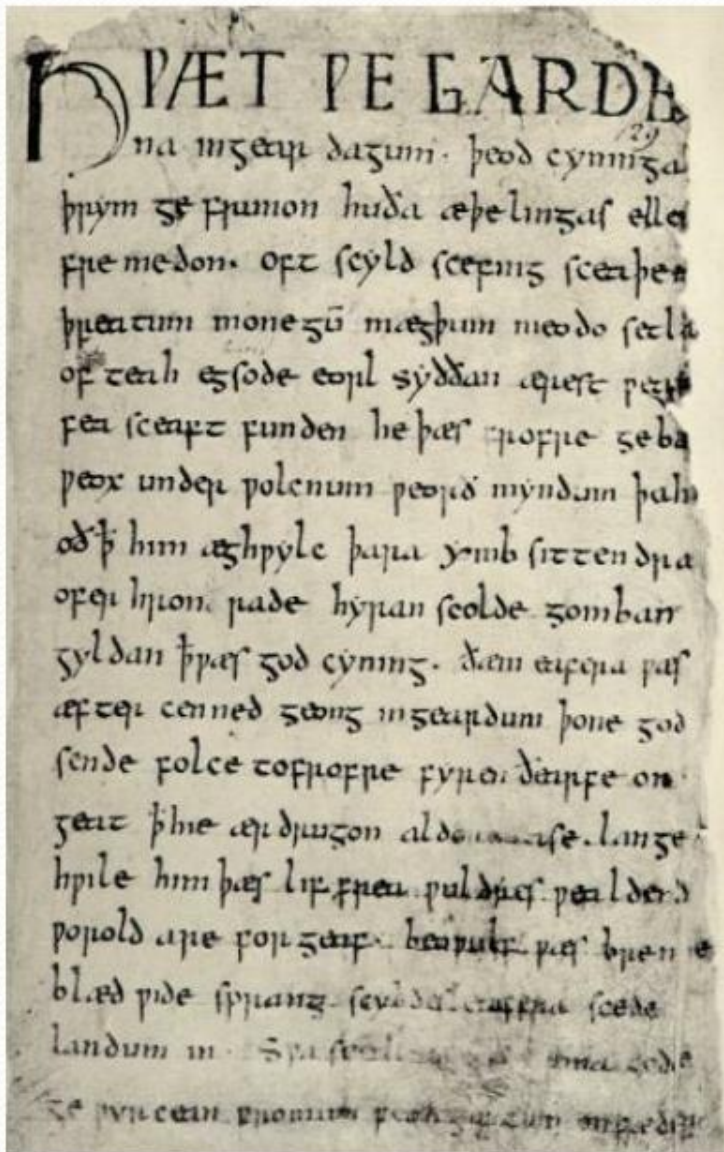 HǷÆT ǷE GARDE
129
na ingear dagum. þeod cyninga
þrym ge frunon huða æþelingas elle
fremedon. oft scyld scefing sceaþe
þreatum monegū mægþum meodo setla
of teah egsode eorl syððan ærest
fea sceaft funden he þæs frofre geba
ƿeox under ƿolcnum ƿeorð myndum þah
oð ꝥ him æghƿylc þara ymb sittendra
ofer hron rade hyran scolde gomban
gyldan ꝥ ƿæs god cyning. ðæm eafera ƿæs
æfter cenned geong ingeardum þone god
sende folce tofrofre fyren ðearfe on
geat ꝥ hie ær drugon aldor ase. lange
hƿile him þæs liffrea ƿuldres ƿealdend
ƿorold are forgeaf. beoƿulf ƿæs breme
blæd ƿide sprang scyldes eafera scede
landum in. Sƿa guma gode
ge ƿyrcean fromum feohgiftum